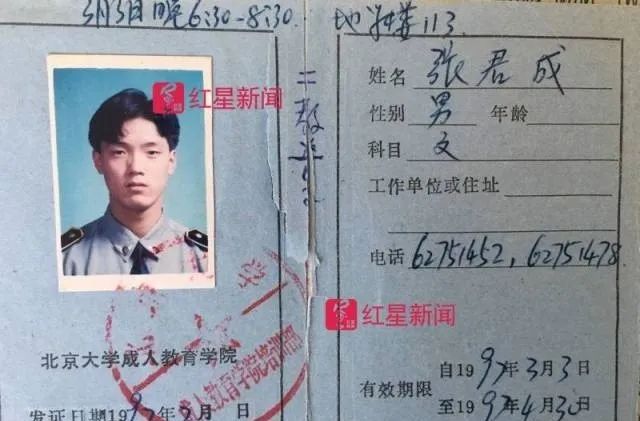 3月3日晚6:30-8:30. 地学楼113.
红星新闻
北京大学成人教育学院
发证日期1997年3月 日
人教育学院培训部
二教
姓名 张君成
性别 男 年龄
科目 文
工作单位或住址
电话 62751452, 62751478
红星新闻
有效期限
自1997年3月3日
至1997年4月30日